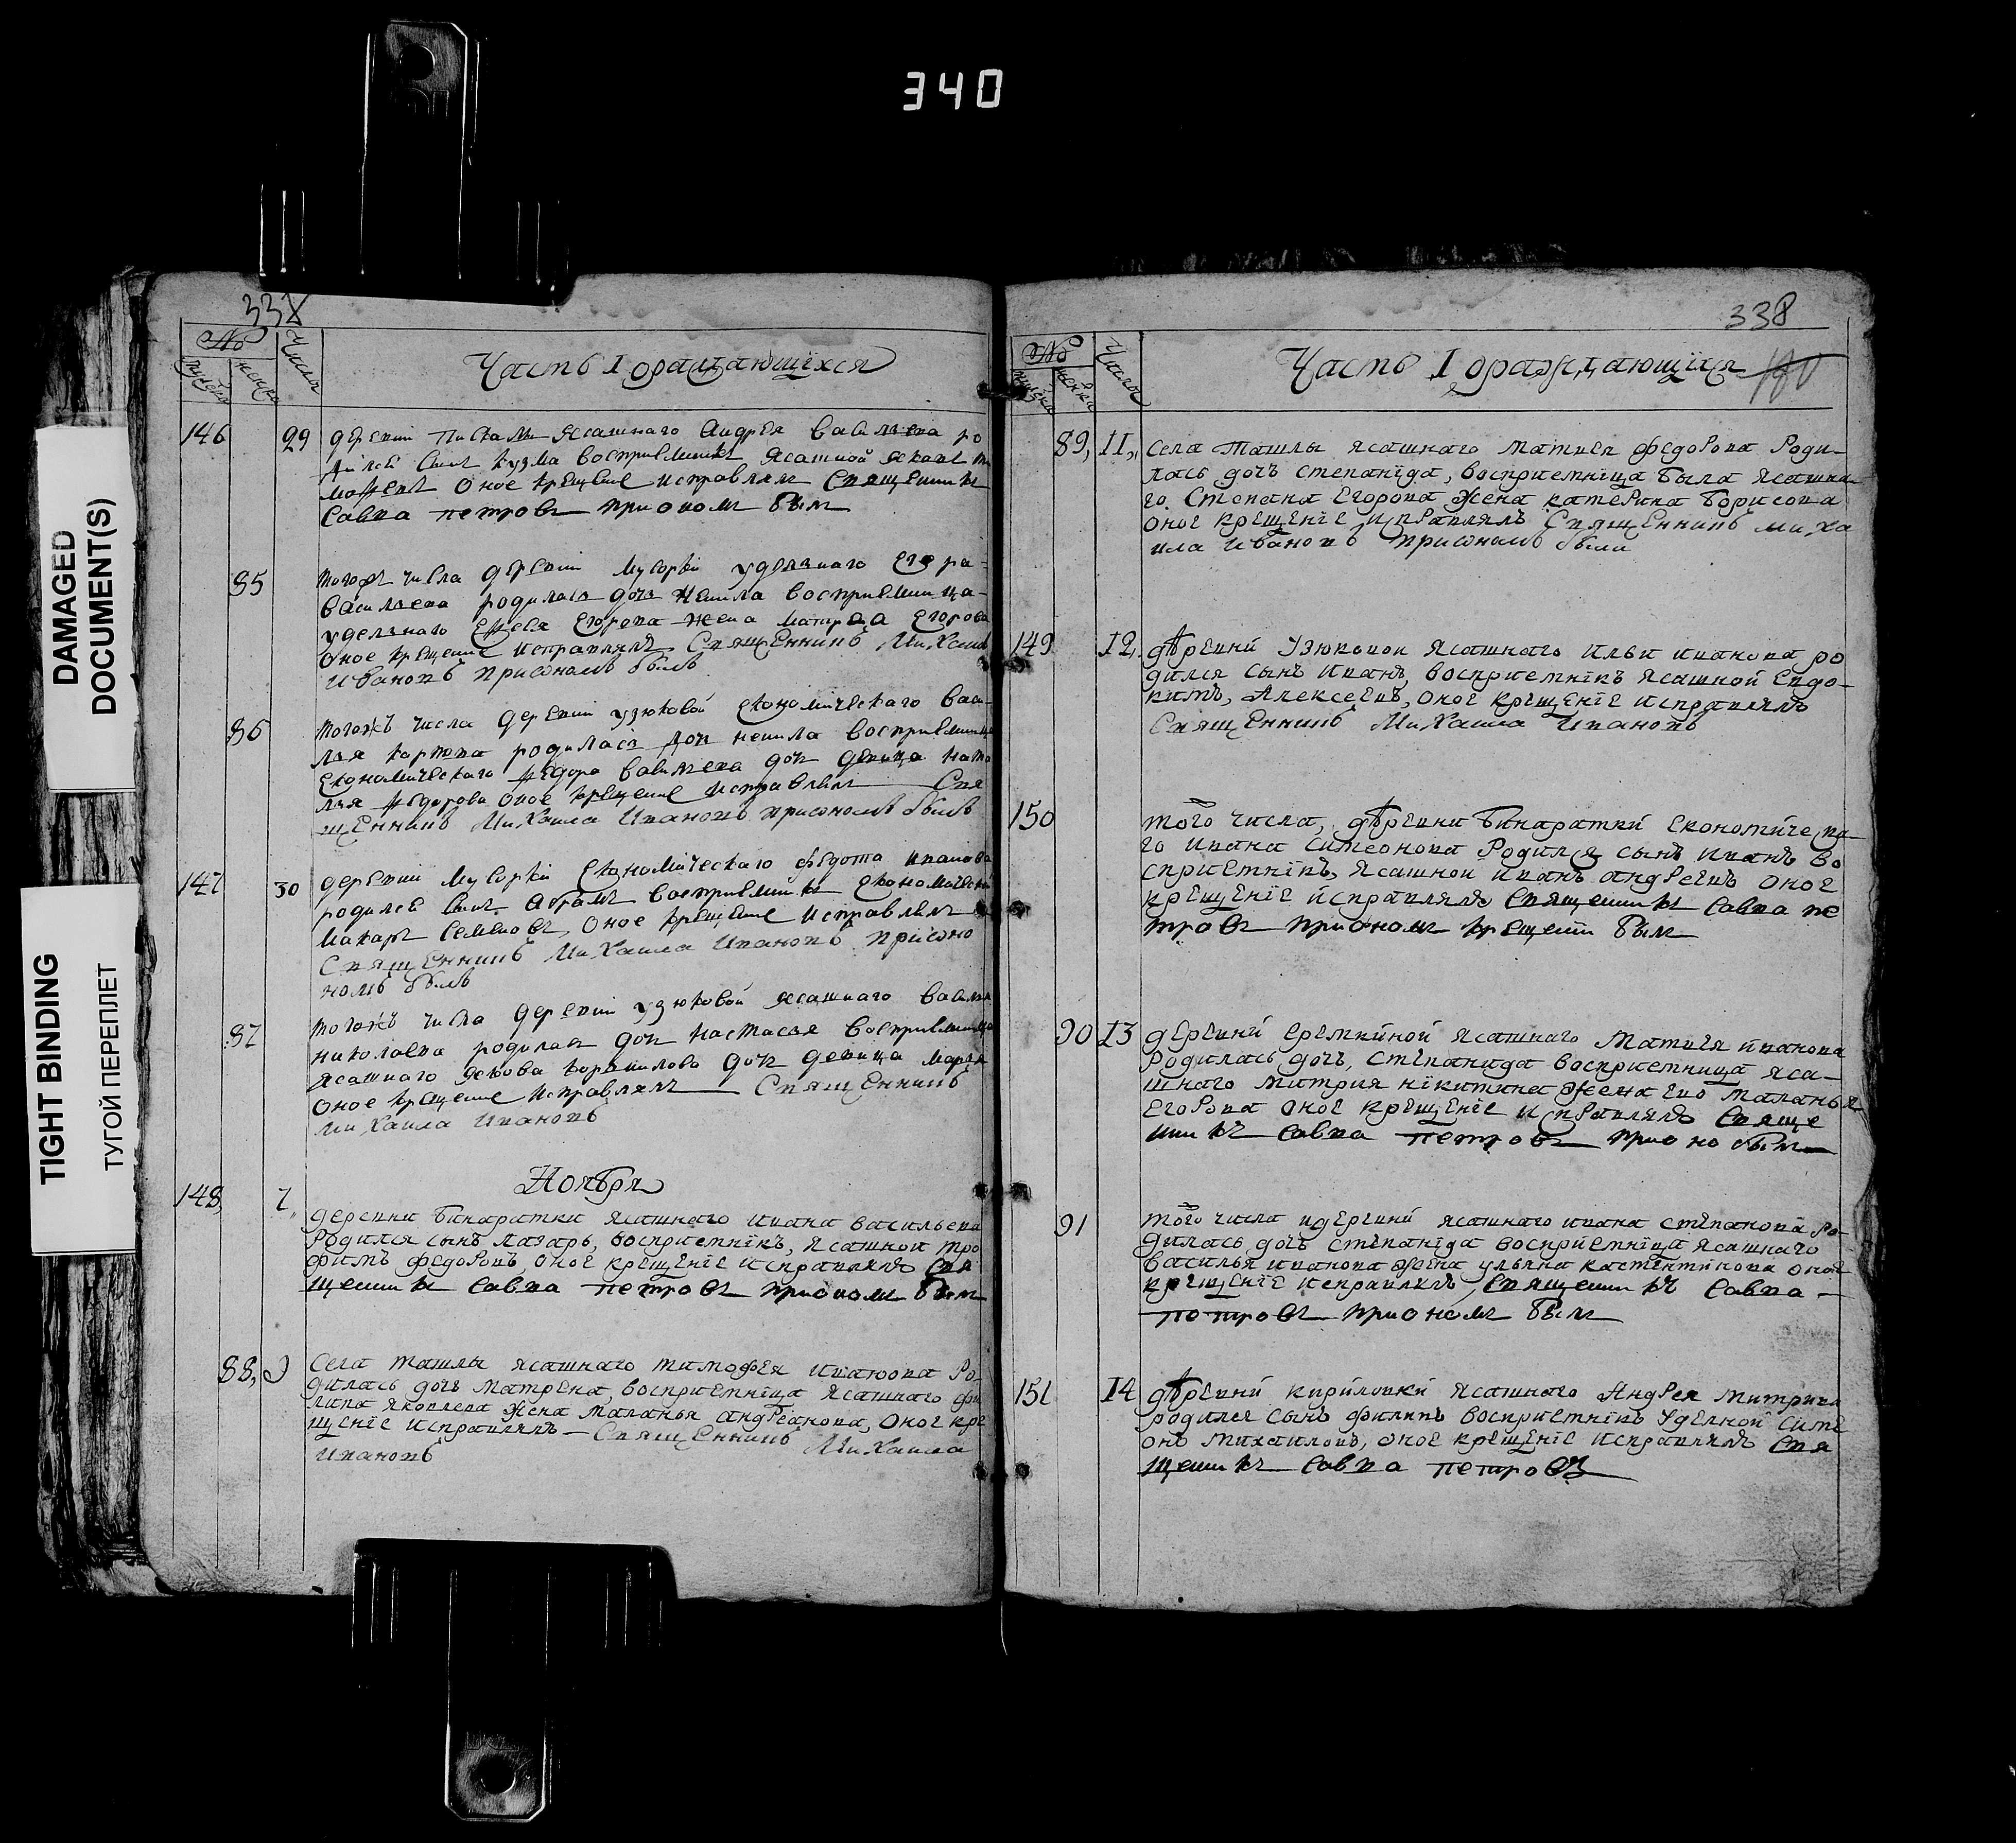 340
DAMAGED
DOCUMENT(S)
TIGHT BINDING
ТУГОЙ ПЕРЕПЛЕТ
№
Числа
Часть I ораждающихся
146 29 деревни Пискалы Ясашнаго Андрея Васильева ро
дился сынъ Кузма восприемникъ Ясашной
Оное крещение исправлялъ Священникъ
Савва петровъ при оном был
85 тогожъ числа деревни Мусорки удельнаго Егора
Васильева родилась дочь Ненила восприемница
удельнаго Егорова жена Матрена Егорова
Оное крещение исправлялъ Священникъ Михаила
Ивановъ при ономъ былъ
86 тогожъ числа деревни узюковой Економическаго Васи
лья Карпова родилась дочь ненила восприемница
Економическаго Федора Васильева дочь девица Ната
лья Федорова оное крещение исправлялъ Свя
щенникъ Михаила Ивановъ при ономъ былъ
147 30 деревни Мусорки Економическаго Федота иванова
родился сынъ Абрамъ восприемникъ Економической
Макаръ Семеновъ, Оное крещение исправлялъ
Священникъ Михаила Ивановъ при оно
номъ былъ
87 тогожъ числа деревни узюковой ясашнаго Василья
николаева родилась дочь настасья восприемница
ясашнаго якова корнилова дочь девица Марья
Оное крещение исправлялъ Священникъ
Михаила Ивановъ
Ноября
148 7 деревни Бинаратки Ясашнаго ивана васильева
Родился сынъ лазарь, восприемникъ, ясашной тро
фимъ федоровъ, оное крещенїе исправлялъ Свя
щенникъ Савва петровъ при оном был
88, 9 Села ташлы ясашнаго тимофея Ро
дилась дочь матрена, восприемнїца ясашнаго фи
липа яковлева жена маланья андреянова, оное кре
щенїе исправлялъ Священникъ Михаила
Ивановъ
338
№
Числа
Часть I ораждающихся
89, 11, Села ташлы ясашнаго матвея федорова Роди
лась дочь степанїда, восприемнїца была ясашна
го Степана Егорова жена катерина борисова
оное крещенїе исправлялъ Священникъ миха
ила ивановъ при ономъ были
149 12, деревни узюковои ясашнаго ильи иванова ро
дился сынъ иванъ, восприемнїкъ ясашной Евдо
кимъ, Алексеевъ, оное крещенїе исправлялъ
Священникъ Михаила Ивановъ
150 того числа, деревни Бинаратки економическа
го ивана симеонова Родился сынъ иванъ во
сприемнїкъ, ясашнои иванъ андреевъ оное
крещенїе исправлялъ Священникъ Савва пе
тровъ при оном крещении был
90 13 деревни еремкиной ясашнаго матвея иванова
родилась дочь, степанида восприемнища яса
шнаго митрия нїкитина жена ево маланья
Егорова оное крещенїе исправлялъ Свяще
нникъ Савва петровъ при оно был
91 того числа и деревни ясашнаго ивана степанова ро
дилась дочь степанїда восприемнїца ясашнаго
василья иванова жена ульяна кастентинова оное
крещенїе исправлялъ, Священникъ Савва
петровъ при оном был
151 14 деревни кириловки ясашнаго Андрея митрива
родился сынъ филипъ восприемнїкъ уделной симе
онъ михаиловъ, оное крещенїе исправлялъ Свя
щенникъ Савва петровъ